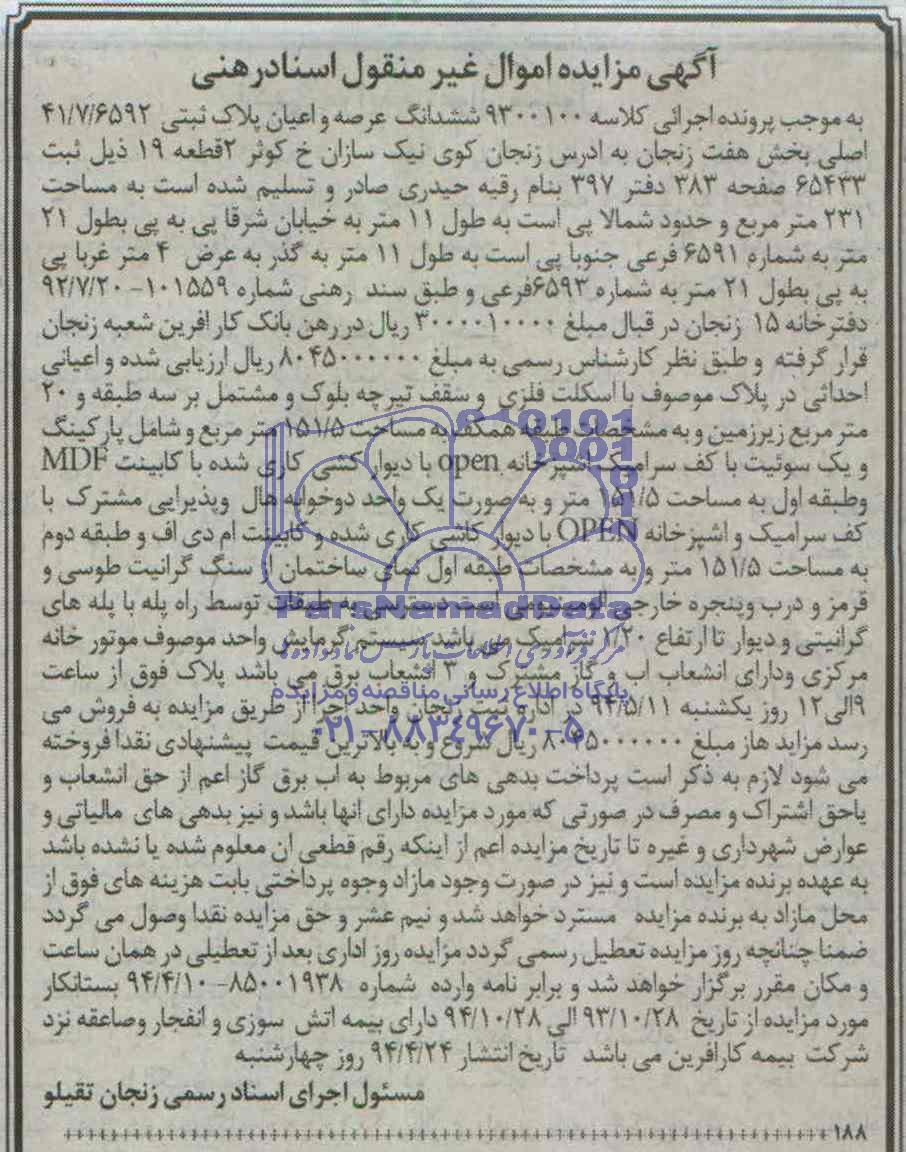 آگهی مزایده اموال غیر منقول اسناد رهنی
به موجب پرونده اجرائی کلاسه ۹۳۰۰۱۰۰ ششدانگ عرصه و اعیان پلاک ثبتی ۴۱/۷/۶۵۹۲
اصلی بخش هفت زنجان به ادرس زنجان کوی نیک سازان خ کوثر ۲قطعه ۱۹ ذیل ثبت
۶۵۴۳۳ صفحه ۳۸۳ دفتر ۳۹۷ بنام رقیه حیدری صادر و تسلیم شده است به مساحت
۲۳۱ متر مربع و حدود شمالا پی است به طول ۱۱ متر به خیابان شرقا پی به پی بطول ۲۱
متر به شماره ۶۵۹۱ فرعی جنوبا پی است به طول ۱۱ متر به گذر به عرض ۴ متر غربا پی
به پی بطول ۲۱ متر به شماره ۶۵۹۳فرعی و طبق سند رهنی شماره ۱۰۱۵۵۹- ۹۲/۷/۲۰
دفترخانه ۱۵ زنجان در قبال مبلغ ۳۰۰۰۰۱۰۰۰۰ ریال در رهن بانک کار افرین شعبه زنجان
قرار گرفته و طبق نظر کارشناس رسمی به مبلغ ۸۰۴۵۰۰۰۰۰۰ ریال ارزیابی شده و اعیانی
احداثی در پلاک موصوف با اسکلت فلزی و سقف تیرچه بلوک و مشتمل بر سه طبقه و ۲۰
متر مربع زیرزمین و به مشخصات طبقه همکف به مساحت ۱۵۱/۵ متر مربع و شامل پارکینگ
و یک سوئیت با کف سرامیک اشپزخانه open با دیوار کشی کاری شده با کابینت MDF
وطبقه اول به مساحت ۱۵۱/۵ متر و به صورت یک واحد دوخوابه هال وپذیرایی مشترک با
کف سرامیک و اشپزخانه OPEN با دیوار کاشی کاری شده و کابینت ام دی اف و طبقه دوم
به مساحت ۱۵۱/۵ متر و به مشخصات طبقه اول نمای ساختمان از سنگ گرانیت طوسی و
قرمز و درب وپنجره خارجی الومینیومی است دسترسی به طبقات توسط راه پله با پله های
گرانیتی و دیوار تا ارتفاع ۱/۲۰ سرامیک می باشد سیستم گرمایش واحد موصوف موتور خانه
مرکزی ودارای انشعاب اب و گاز مشترک و ۳ انشعاب برق می باشد پلاک فوق از ساعت
۹الی۱۲ روز یکشنبه ۹۴/۵/۱۱ در اداره ثبت زنجان واحد اجرا از طریق مزایده به فروش می
رسد مزاید هاز مبلغ ۸۰۴۵۰۰۰۰۰۰ ریال شروع و به بالاترین قیمت پیشنهادی نقدا فروخته
می شود لازم به ذکر است پرداخت بدهی های مربوط به اب برق گاز اعم از حق انشعاب و
یاحق اشتراک و مصرف در صورتی که مورد مزایده دارای انها باشد و نیز بدهی های مالیاتی و
عوارض شهرداری و غیره تا تاریخ مزایده اعم از اینکه رقم قطعی ان معلوم شده یا نشده باشد
به عهده برنده مزایده است و نیز در صورت وجود مازاد وجوه پرداختی بابت هزینه های فوق از
محل مازاد به برنده مزایده مسترد خواهد شد و نیم عشر و حق مزایده نقدا وصول می گردد
ضمنا چنانچه روز مزایده تعطیل رسمی گردد مزایده روز اداری بعد از تعطیلی در همان ساعت
و مکان مقرر برگزار خواهد شد و برابر نامه وارده شماره ۸۵۰۰۱۹۳۸- ۹۴/۴/۱۰ بستانکار
مورد مزایده از تاریخ ۹۳/۱۰/۲۸ الی ۹۴/۱۰/۲۸ دارای بیمه اتش سوزی و انفجار وصاعقه نزد
شرکت بیمه کارافرین می باشد تاریخ انتشار ۹۴/۴/۲۴ روز چهارشنبه
مسئول اجرای اسناد رسمی زنجان تقیلو
۱۸۸
ParsNamadData
پایگاه اطلاع رسانی مناقصه و مزایده
۰۲۱-۸۸۳۴۹۶۷۰-۵